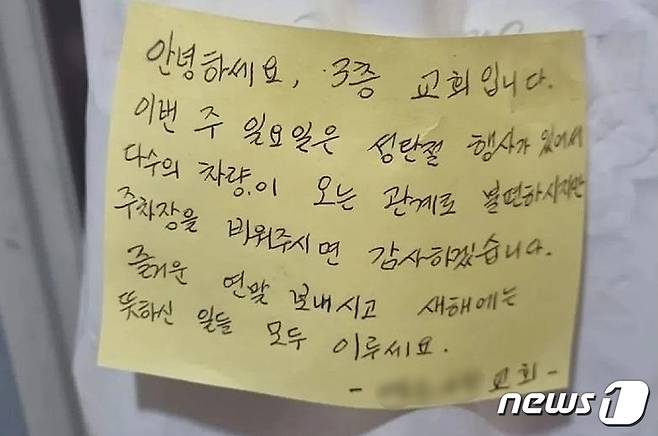 안녕하세요, 3층 교회입니다.
이번 주 일요일은 성탄절 행사가 있어서
다수의 차량이 오는 관계로 불편하시지만
주차장을 비워주시면 감사하겠습니다.
즐거운 연말 보내시고 새해에는
뜻하신 일들 모두 이루세요.
- 교회 -
news1